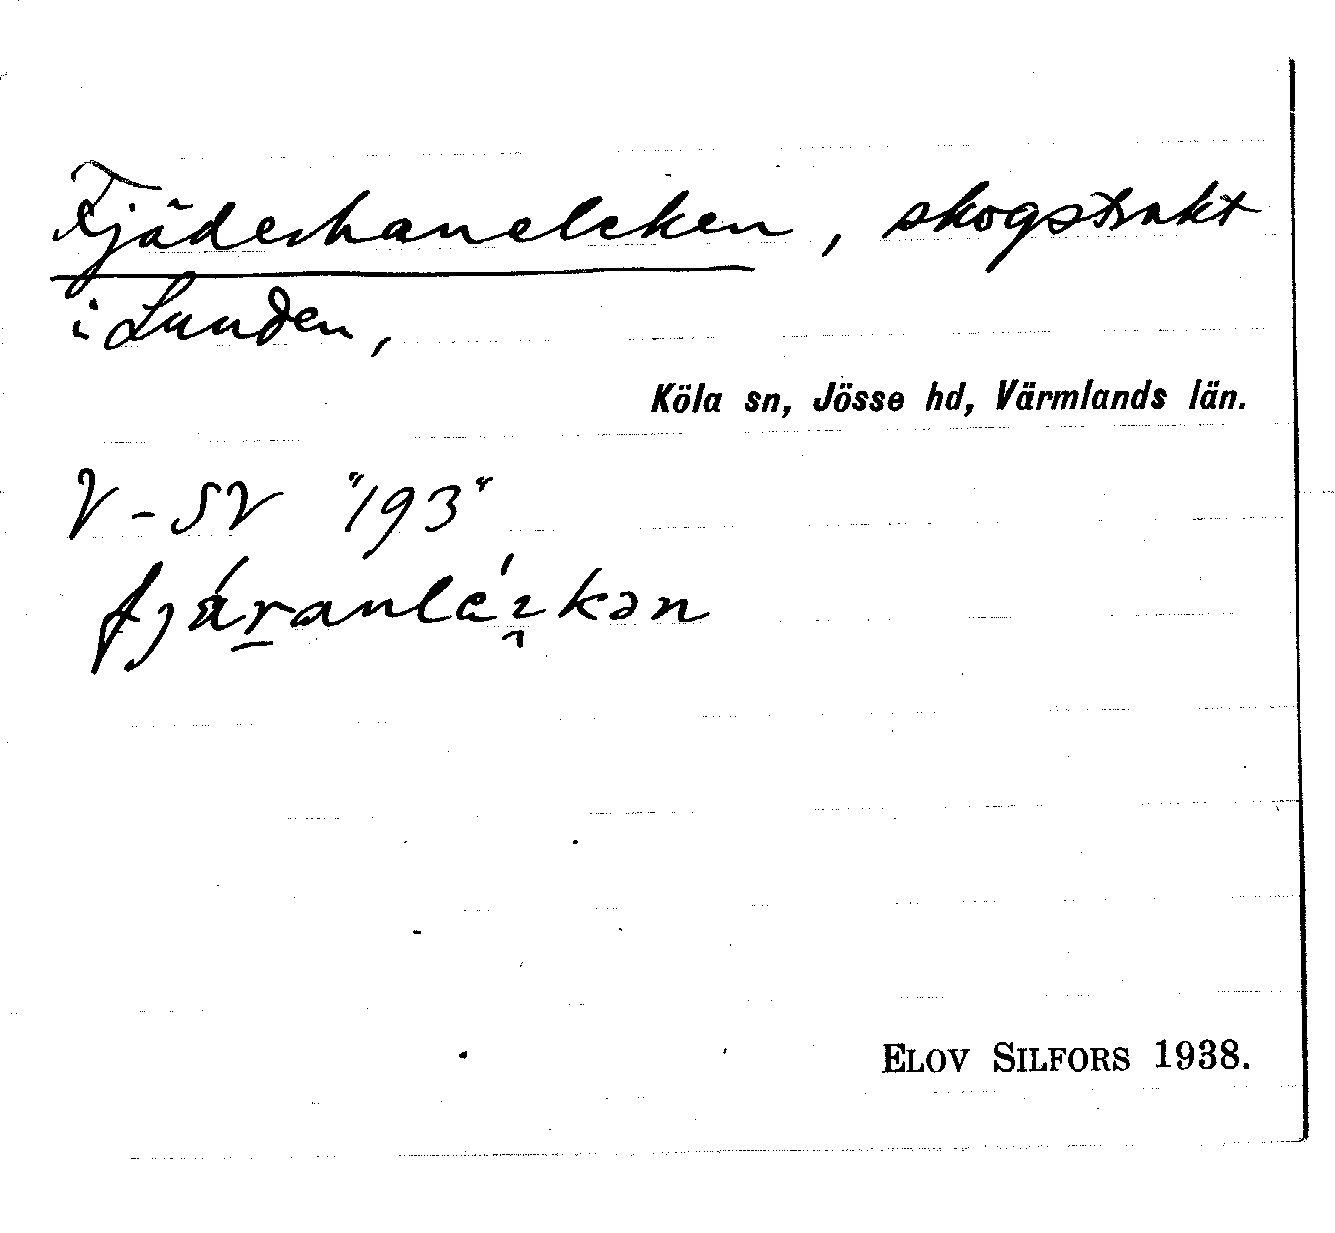 Fjäderhanelcken, skogstrakt
i Lunden,
Köla sn, Jösse hd, Värmlands län.
V - SV "193"
ELOV SILFORS 1938.